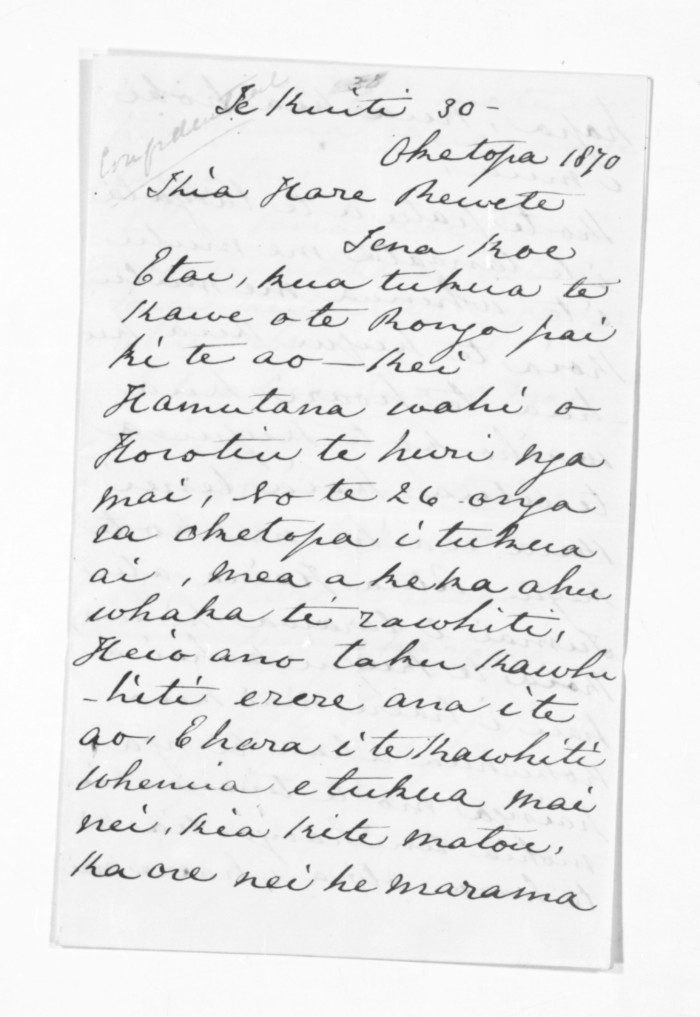 38
Te Kuiti 30-
Confidential
Oketopa 1870
Kia Hare Rewete
Tena Koe
Etai, kua tukua te
kawe o te Rongo pai
ki te ao — Kei
Hamutana wahi o
Horotiu te huri nga
mai, No te 26 onga
ra oketopa i tukua
ai, mea ake ka ahu
whaka te rawhiti,
Heio ano taku Kawhi
-hiti erere ana i te
ao, Ehara i te Kawhiti
whenua e tukua mai
nei, kia kite matou,
Ka ore nei he marama